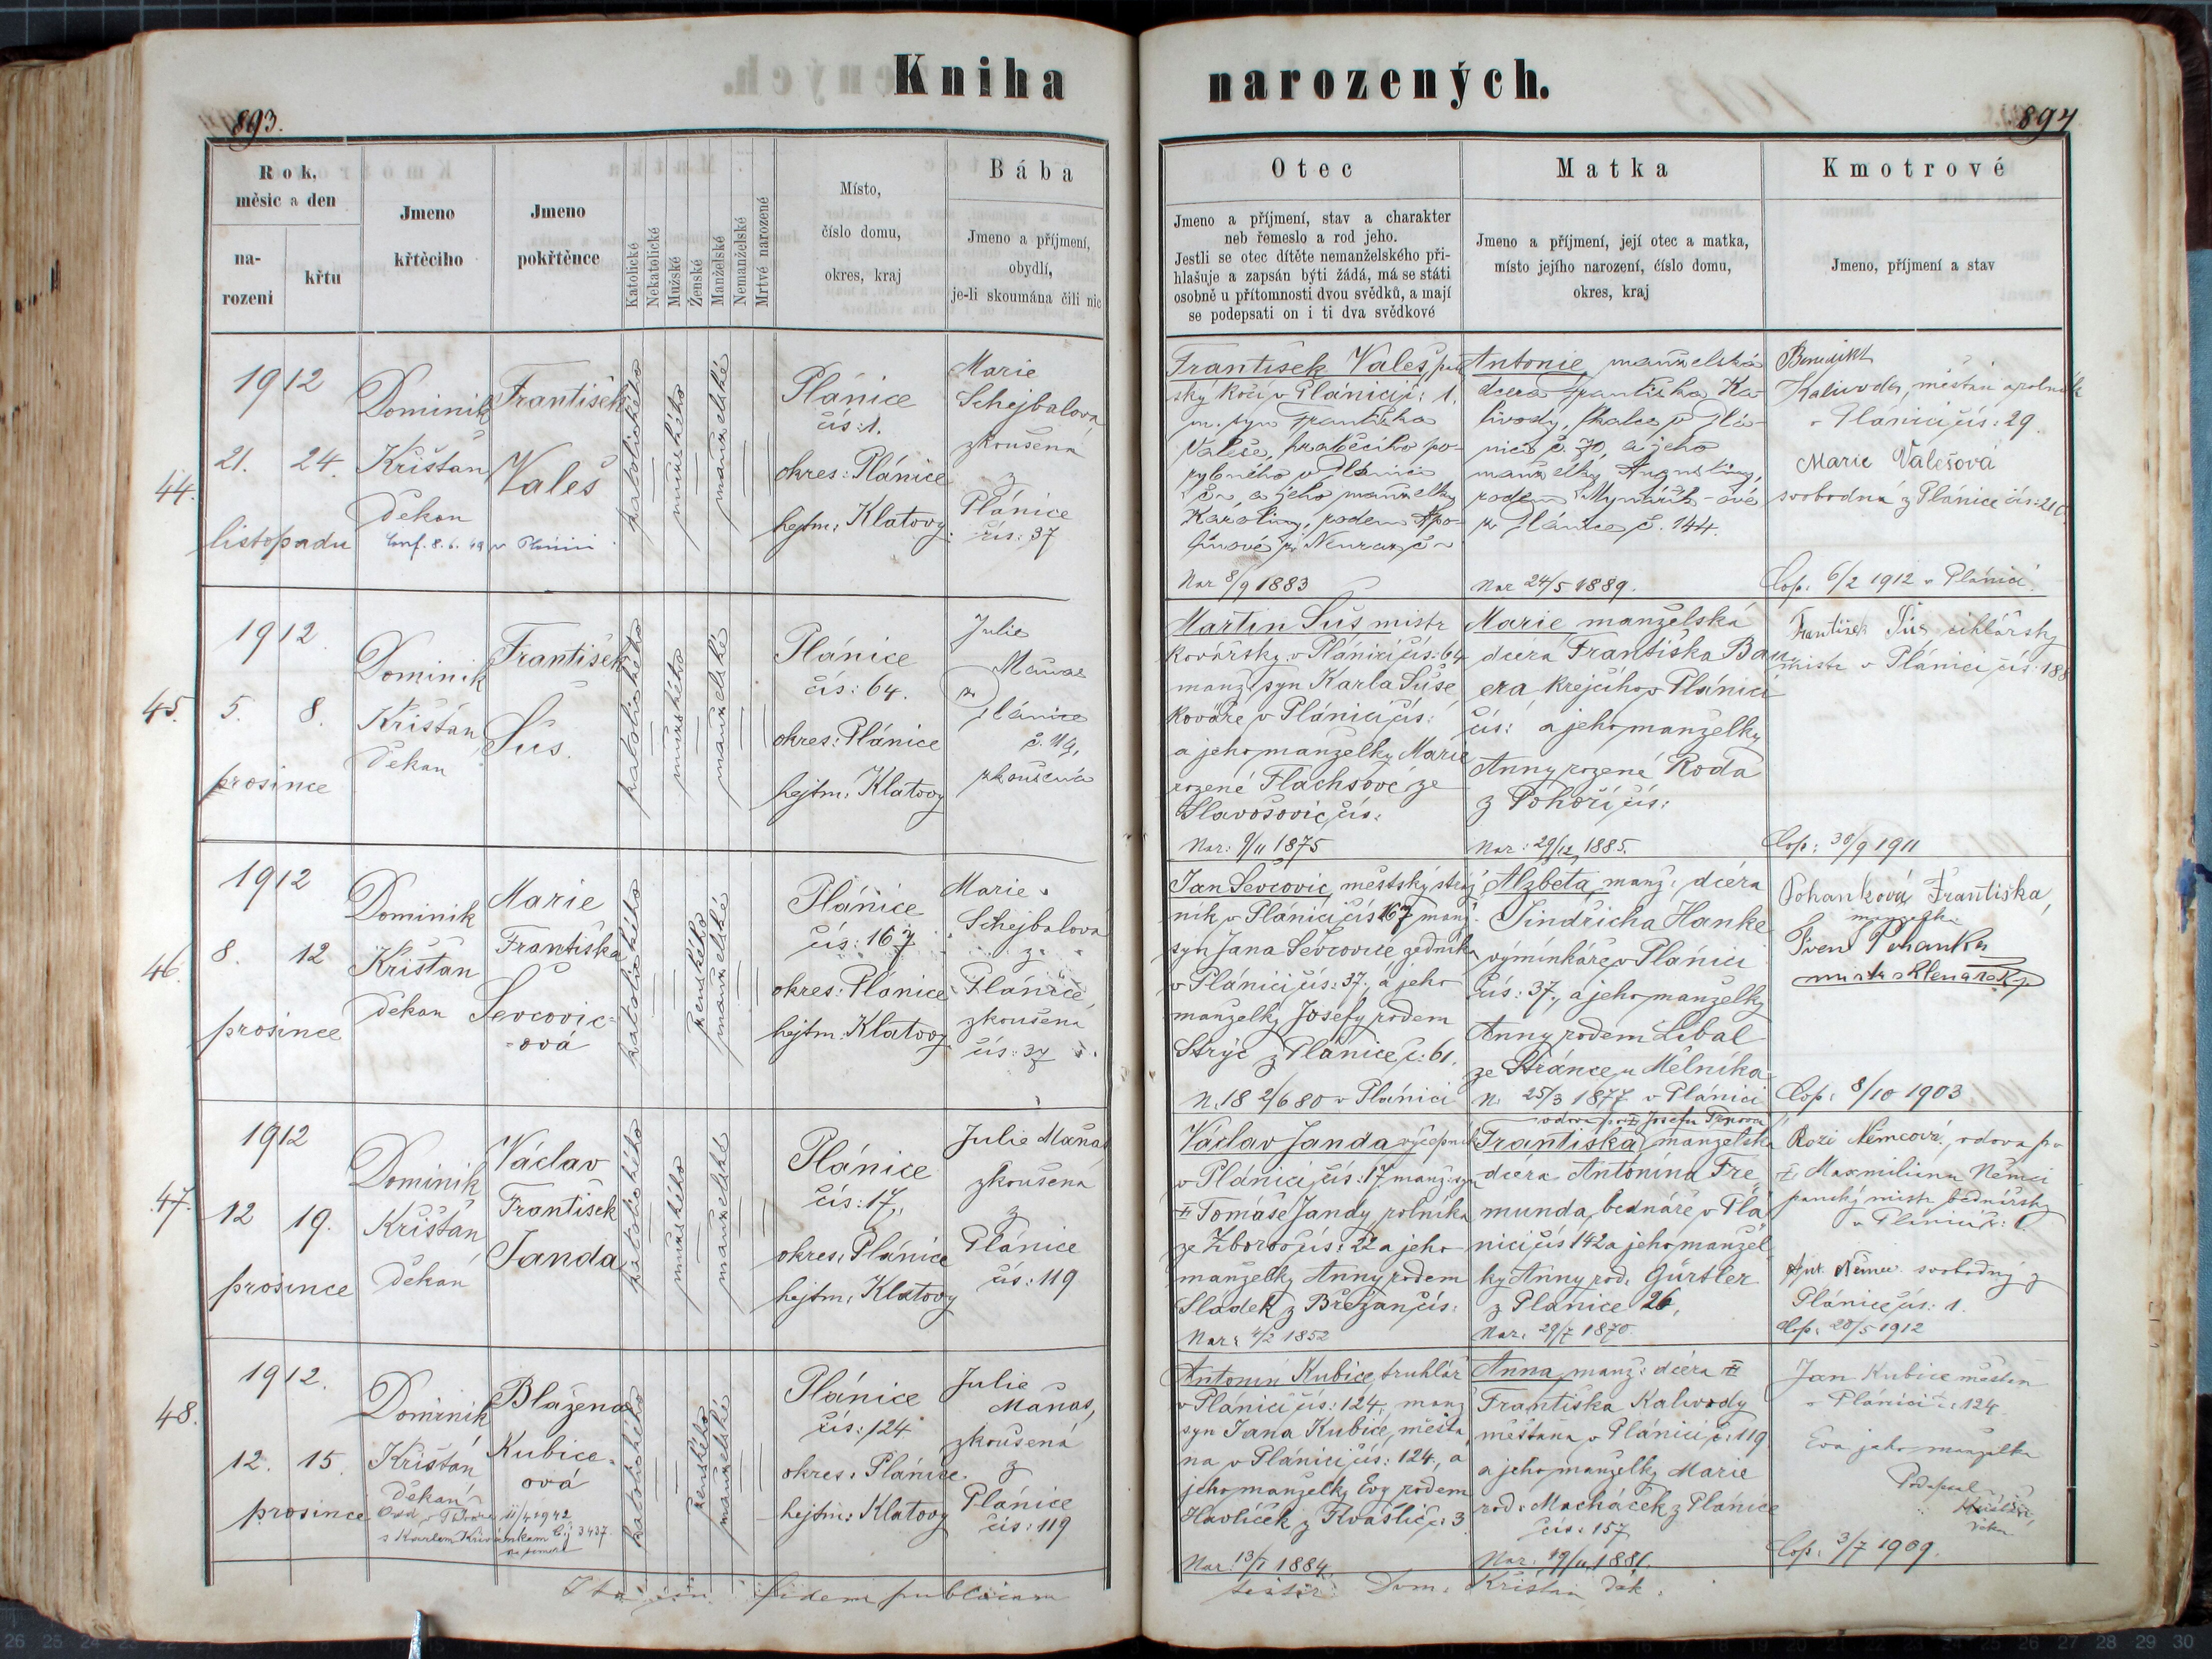 Kniha narozených.
893.
894
Rok,
měsíc a den
na-
rození
křtu
Jmeno
křtěcího
Jmeno
pokřtěnce
Katolické
Nekatolické
Mužské
Ženské
Manželské
Nemanželské
Mrtvé narozené
Místo,
číslo domu,
okres, kraj
Bába
Jmeno a příjmení,
obydlí,
je-li skoumána čili nic
Otec
Jmeno a příjmení, stav a charakter
neb řemeslo a rod jeho.
Jestli se otec dítěte nemanželského při-
hlašuje a zapsán býti žádá, má se státi
osobně u přítomnosti dvou svědků, a mají
se podepsati on i ti dva svědkové
Matka
Jmeno a příjmení, její otec a matka,
místo jejího narození, číslo domu,
okres, kraj
Kmotrové
Jmeno, příjmení a stav
44.
1912
21. 24.
listopadu
Dominik
Krištan
děkan
Conf. 8. 6. 49 v Plánici
František
Valeš
katolického
mužského
manželské
Plánice
čís: 1.
okres: Plánice
hejtm: Klatovy
Marie
Schejbalova
zkoušená
z
Plánice
čís: 37
František Valeš, pan
ský kočí v Plánici č: 1.
m. syn Františka
Valeše,
v Plánici
a jeho manželky
Karoliny, rodem
Nar 8/9 1883
Antonie, manželská
dcera Františka Ka-
livody, v Plá-
nici č. 70, a jeho
manželky Augustiny,
rodem
z Plánice č. 144.
Nar 24/5 1889.
Benedikt
Kalivoda, měšťan a rolník
v Plánici čís: 29.
Marie Valešová
svobodná z Plánice
Cop. 6/2 1912 v Plánici
45.
1912
5. 8.
prosince
Dominik
Krištan
děkan
František
Suš.
katolického
mužského
manželské
Plánice
čís: 64.
okres: Plánice
hejtm: Klatovy
Julie
Maňas
z
Plánice
č. 119,
zkoušená
Martin Suš mistr
kovářský v Plánici čís: 64
manž. syn Karla Suše
kováře v Plánici čís:
a jeho manželky Marie
rozené Flachsové ze
Slavošovic čís:
Nar: 9/11 1875
Marie manželská
dcera Františka Bau
era krejčího v Plánici
čís: a jeho manželky
Anny rozené Roda
z Pohoří čís:
Nar: 29/12 1885.
František Suš
mistr v Plánici čís: 188
Cop: 30/9 1911
46.
1912
8. 12
prosince
Dominik
Krištan
děkan
Marie
Františka
Ševcovic-
-ová
katolického
ženského
manželské
Plánice
čís: 167
okres: Plánice
hejtm: Klatovy
Marie
Schejbalova
z
Plánice,
zkoušená
čís: 37
Jan Ševcovic, městský stráž
ník v Plánici čís 167 manž.
syn Jana Ševcovice zedníka
v Plánici čís: 37, a jeho
manželky Josefy rodem
Strýc z Plánice č: 61.
N. 18 2/6 80 v Plánici
Alžběta, manž: dcéra
Jindřicha Hanke
výmínkáře v Plánici
čís: 37, a jeho manželky
Anny rodem Libal
ze Stránce u Mělníka
N. 25/3 1877 v Plánici
Pohanková Františka,
manželka
Pohanky
mistr sklenářský
Cop: 8/10 1903
47.
1912
12 19.
prosince
Dominik
Krištan
děkan
Václav
František
Janda
katolického
mužského
manželské
Plánice
čís: 17,
okres: Plánice
hejtm: Klatovy
Julie Maňas
zkoušená
z
Plánice
čís: 119
Václav Janda výčepník
v Plánici čís: 17 manž: syn
Tomáše Jandy rolníka
ze Zborov čís: 22 a jeho
manželky Anny rodem
Sladek z Břežan čís:
Nar: 4/2 1852
vdova po Josefu
Františka, manželská
dcéra Antonína Fre
munda, bednáře v Plá
nici čís 142 a jeho manžel
ky Anny rod. Gürtler
z Plánice 26,
Nar. 29/7 1870.
Rozi Němcová, vdova po
Maxmilianu Němci
panský mistr bednářský
v Plánici č: 1
Ant. Němec svobodný z
Plánice čís: 1.
Cop: 20/5 1912
48.
1912.
12. 15.
prosince
Dominik
Krištan
děkan
11/4 1942
s Karlem Křivánkem čj 3437
Blažena
Kubice-
ová
katolického
ženského
manželské
Plánice
čís: 124
okres: Plánice
hejtm: Klatovy
Julie
Maňas,
zkoušená
z
Plánice
čís: 119
Antonín Kubice, truhlář
v Plánici čís: 124, manž
syn Jana Kubice, měšťa
na v Plánici čís: 124, a
jeho manželky Evy rodem
Havlíček z Kvášlic č: 3
Nar. 13/1 1884.
Anna, manž: dcéra
Františka Kalivody
měšťana v Plánici č: 119
a jeho manželky Marie
rod: Macháček z Plánice
čís: 157
Nar. 19/11 1881.
Jan Kubice měšťan
v Plánici č: 124
Eva jeho manželka
Cop: 3/7 1909.
fidem publicam
testor: Dom: Krištan děk: